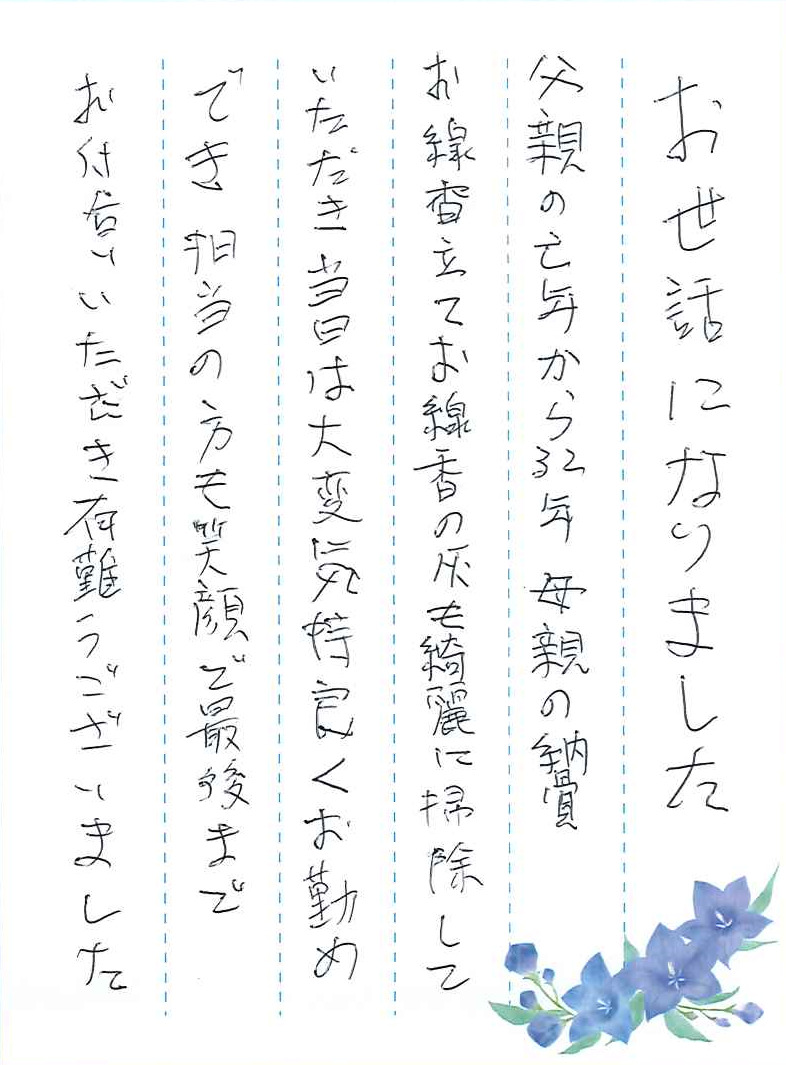 お世話になりました
父親の亡年から32年 母親の納骨
お線香立てお線香の灰も綺麗に掃除して
いただき当日は大変気持良くお勤め
でき 担当の方も笑顔で最後まで
お付合いいただき有難うございました